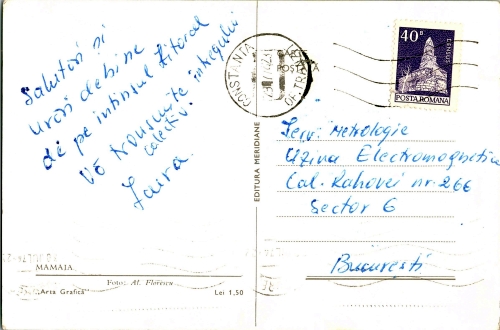 Salutări și
urări de bine
de pe întinsul litoral
vă transmite întregului
colectiv.
Laura
MAMAIA
Foto: Al. Florescu
"Arta Grafică"
Lei 1,50
EDITURA MERIDIANE
CONSTANȚA
40 B
POSTA ROMANA
Serv. Metrologie
Uzina Electromagnetica
Cal. Rahovei nr. 266
Sector 6
București